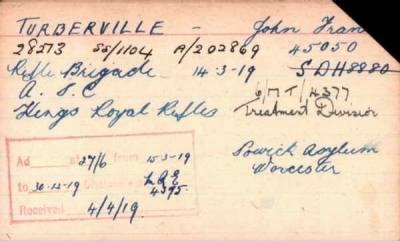 TURBERVILLE - John Fran
28573 SS/1104 A/202869 45050
Rifle Brigade 14-3-19 SDH8880
A.S.C 6/MT/4377
Kings Royal Rifles Treatment Division
Ad 27/6 from 15-3-19
to 30-12-19 LRE 4395
Received 4/4/19.
Powick Asylum
Worcester